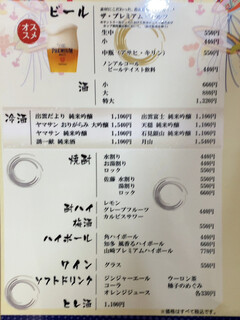 オススメ
ビール
ザ・プレミアムモルツ
生中 550円
小 440円
中瓶(アサヒ・キリン) 550円
ノンアルコール
ビールテイスト飲料 440円
酒
小 660円
大 880円
特大 1,320円
冷酒
出雲だより 純米吟醸 1,100円
出雲富士 純米吟醸 1,100円
ヤマサン おりがらみ 大吟醸 1,500円
天穏 純米吟醸 1,100円
ヤマサン 純米吟醸 1,100円
石見銀山 純米吟醸 1,100円
誘一献 純米酒 1,100円
月山 1,540円
焼酎
水割り 440円
お湯割り 440円
ロック 550円
佐藤 水割り 550円
湯割り 550円
ロック 660円
酎ハイ
レモン 440円
グレープフルーツ 440円
カルピスサワー 440円
梅酒
ハイボール
角ハイボール 440円
知多 風香るハイボール 660円
山崎プレミアムハイボール 770円
ワイン
グラス 550円
ソフトドリンク
ジンジャーエール
ウーロン茶
コーラ
柚子のめぐみ
オレンジ
各330円
ヒレ酒 1,100円
※価格はすべて税込です。